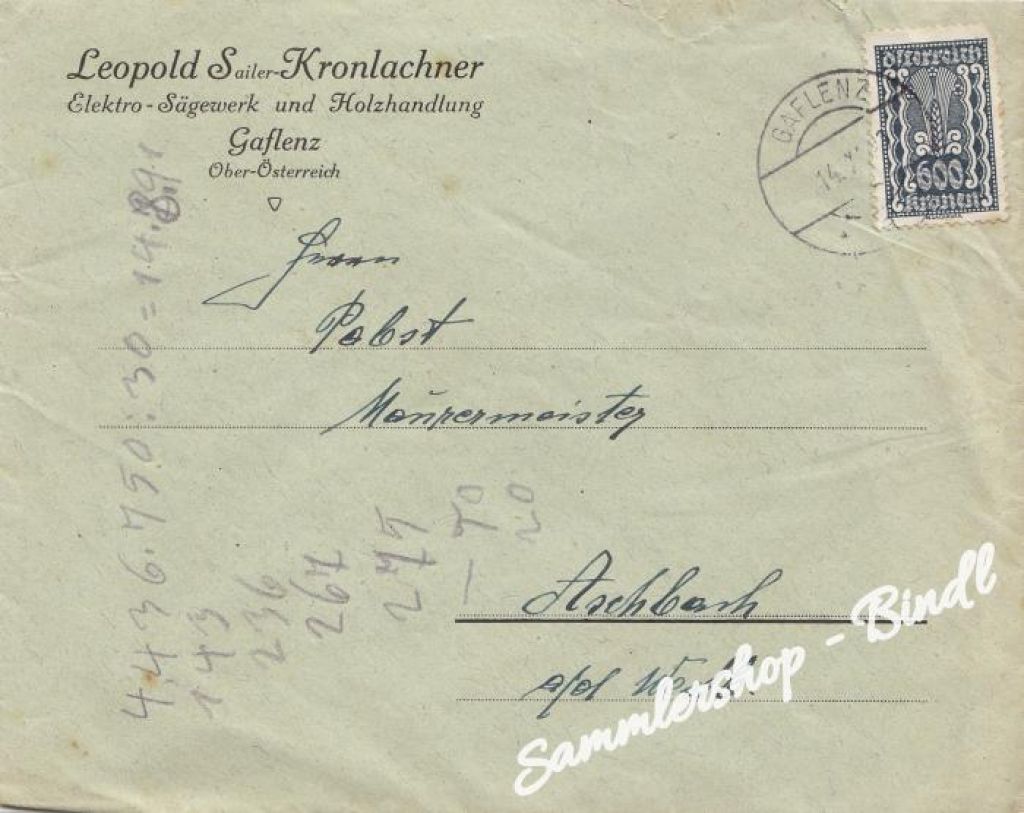 Leopold Sailer-Kronlachner
Elektro-Sägewerk und Holzhandlung
Gaflenz
Ober-Österreich
Österreich
600
Kronen
GAFLENZ
14.
Herrn
Pabst
Maurermeister
Aschbach
a/d
4,436.750:30=14
143
236
267
275
— 70
20
Sammlershop - Bindl